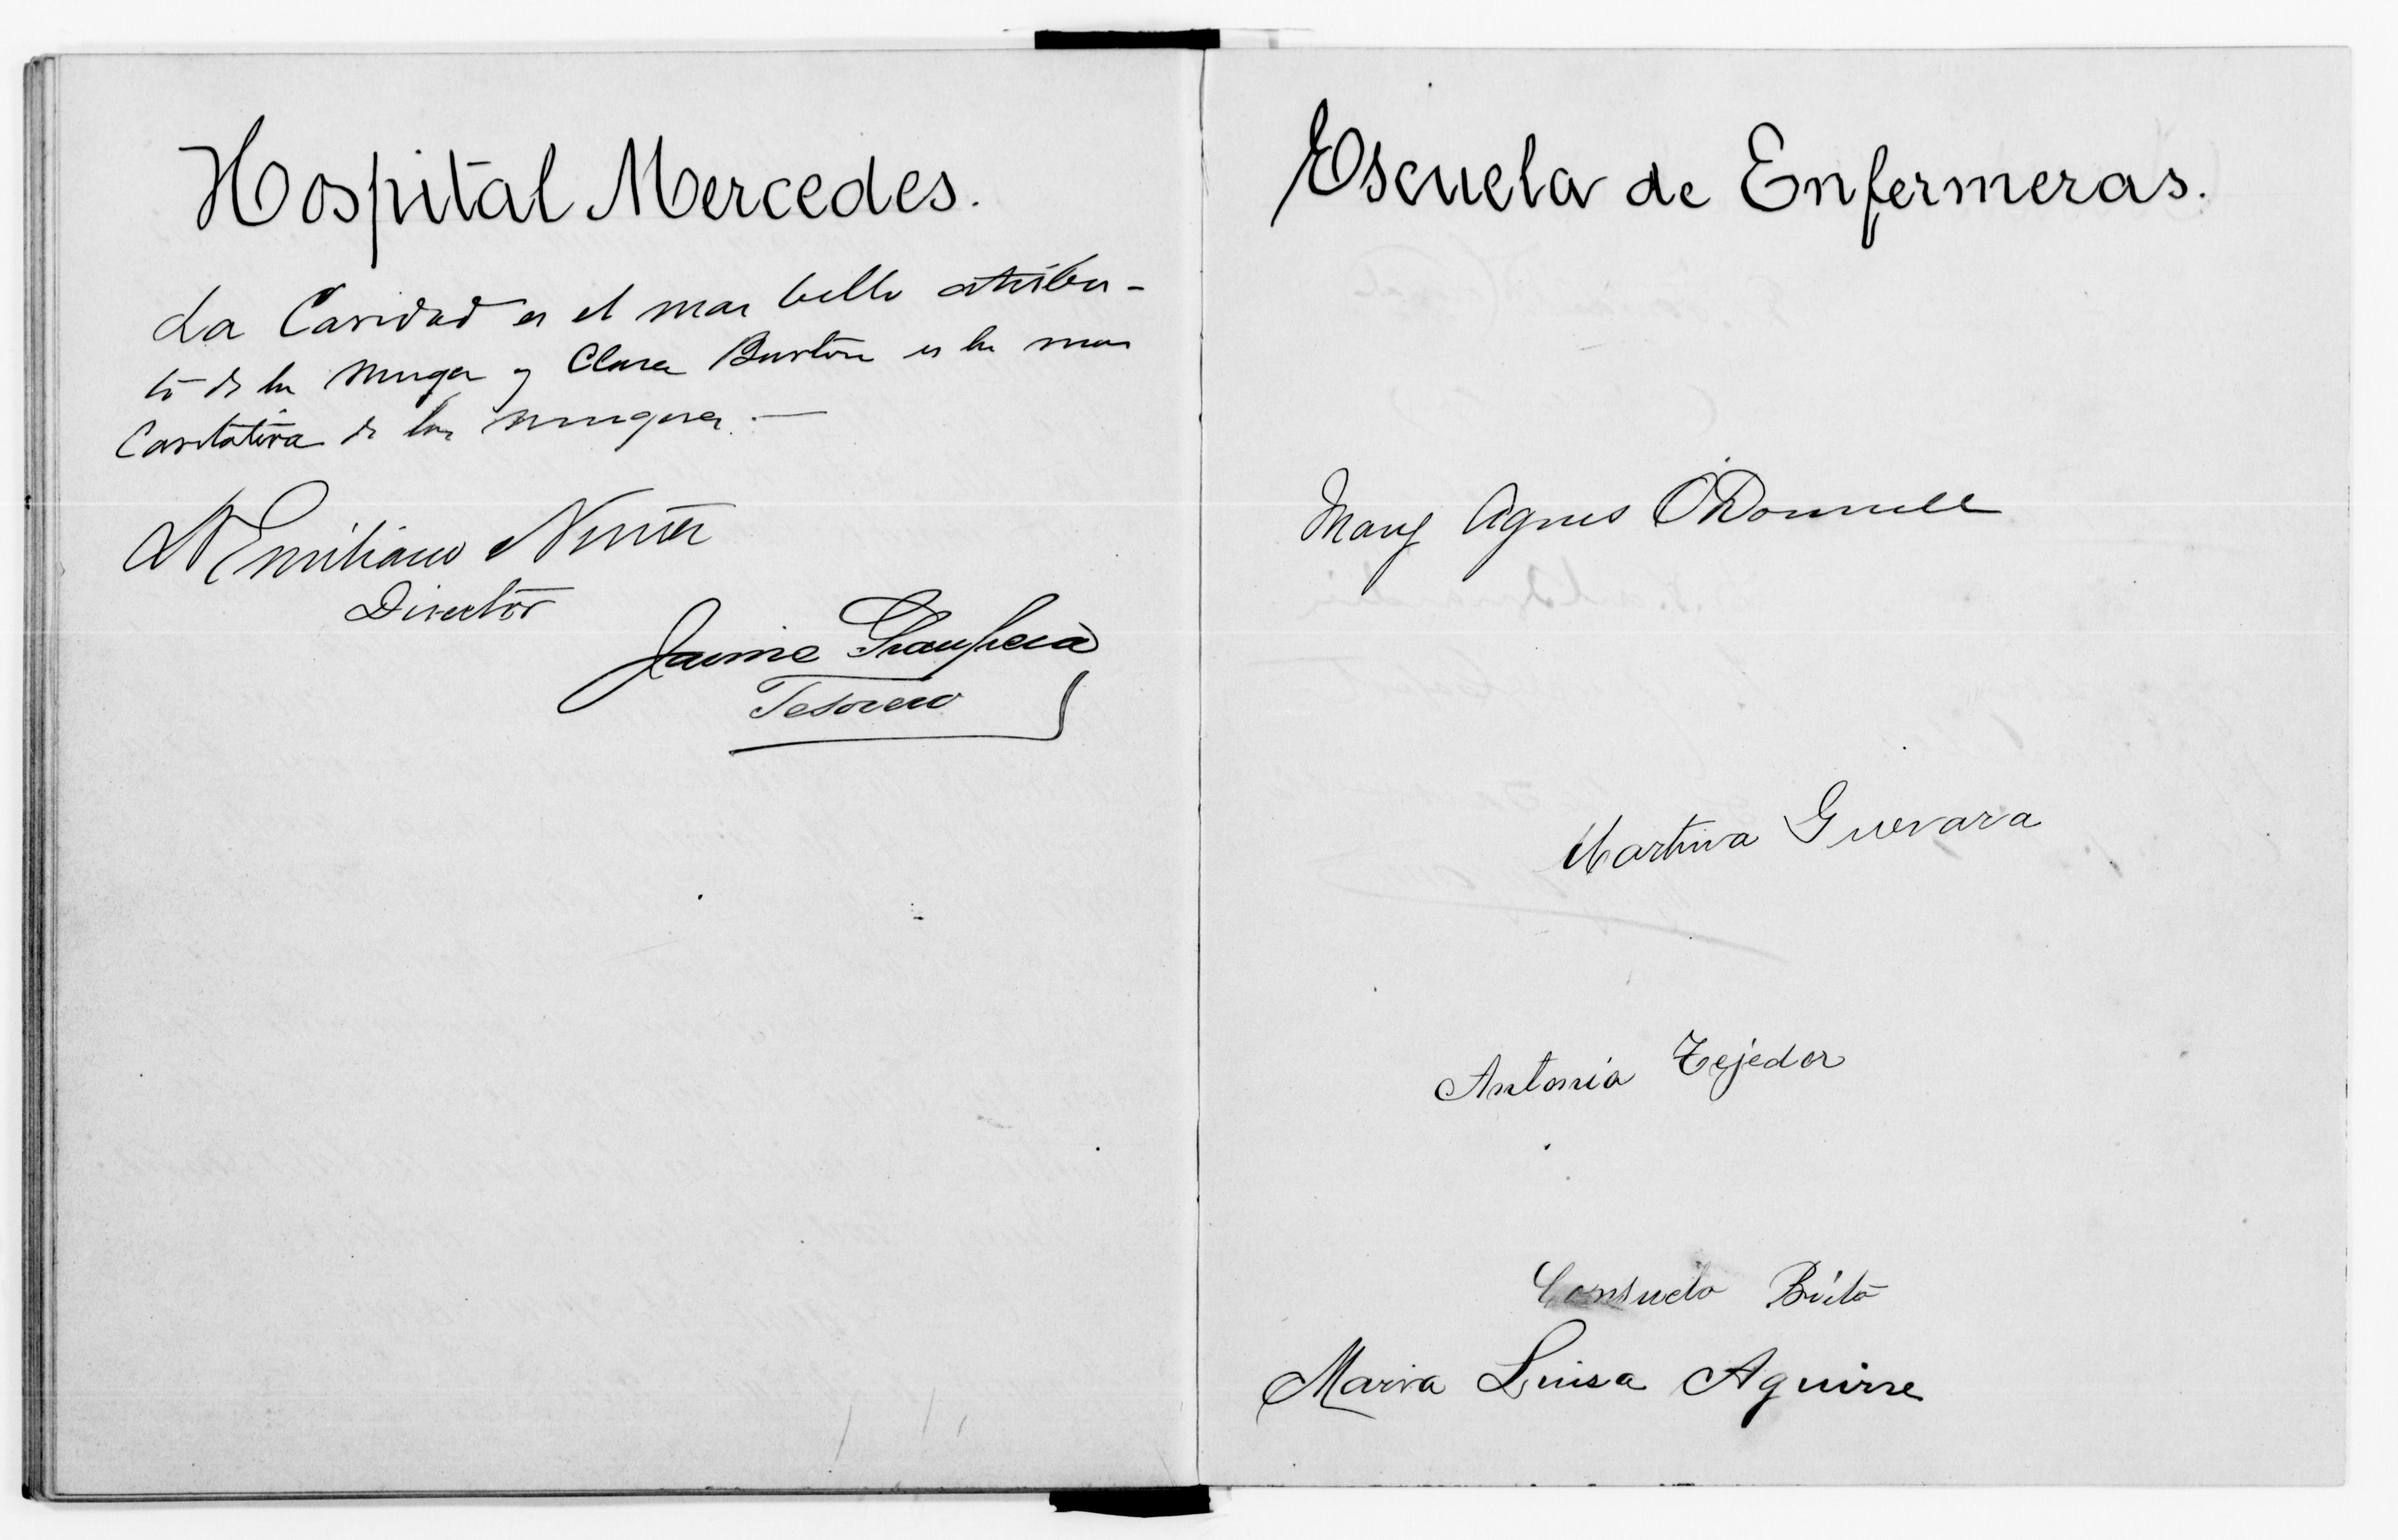 Hospital Mercedes.
La Caridad es el mas bello atribu-
to de la muger y Clara Barton es la mas
Caritativa de las mugeres.—
Dr Emiliano Nuñez
Director
Jaime
Tesorero
Escuela de Enfermeras.
Mary Agnes O'Donnell
Martina Guevara
Antonia Tejedor
Consuelo Brito
Maria Luisa Aguirre